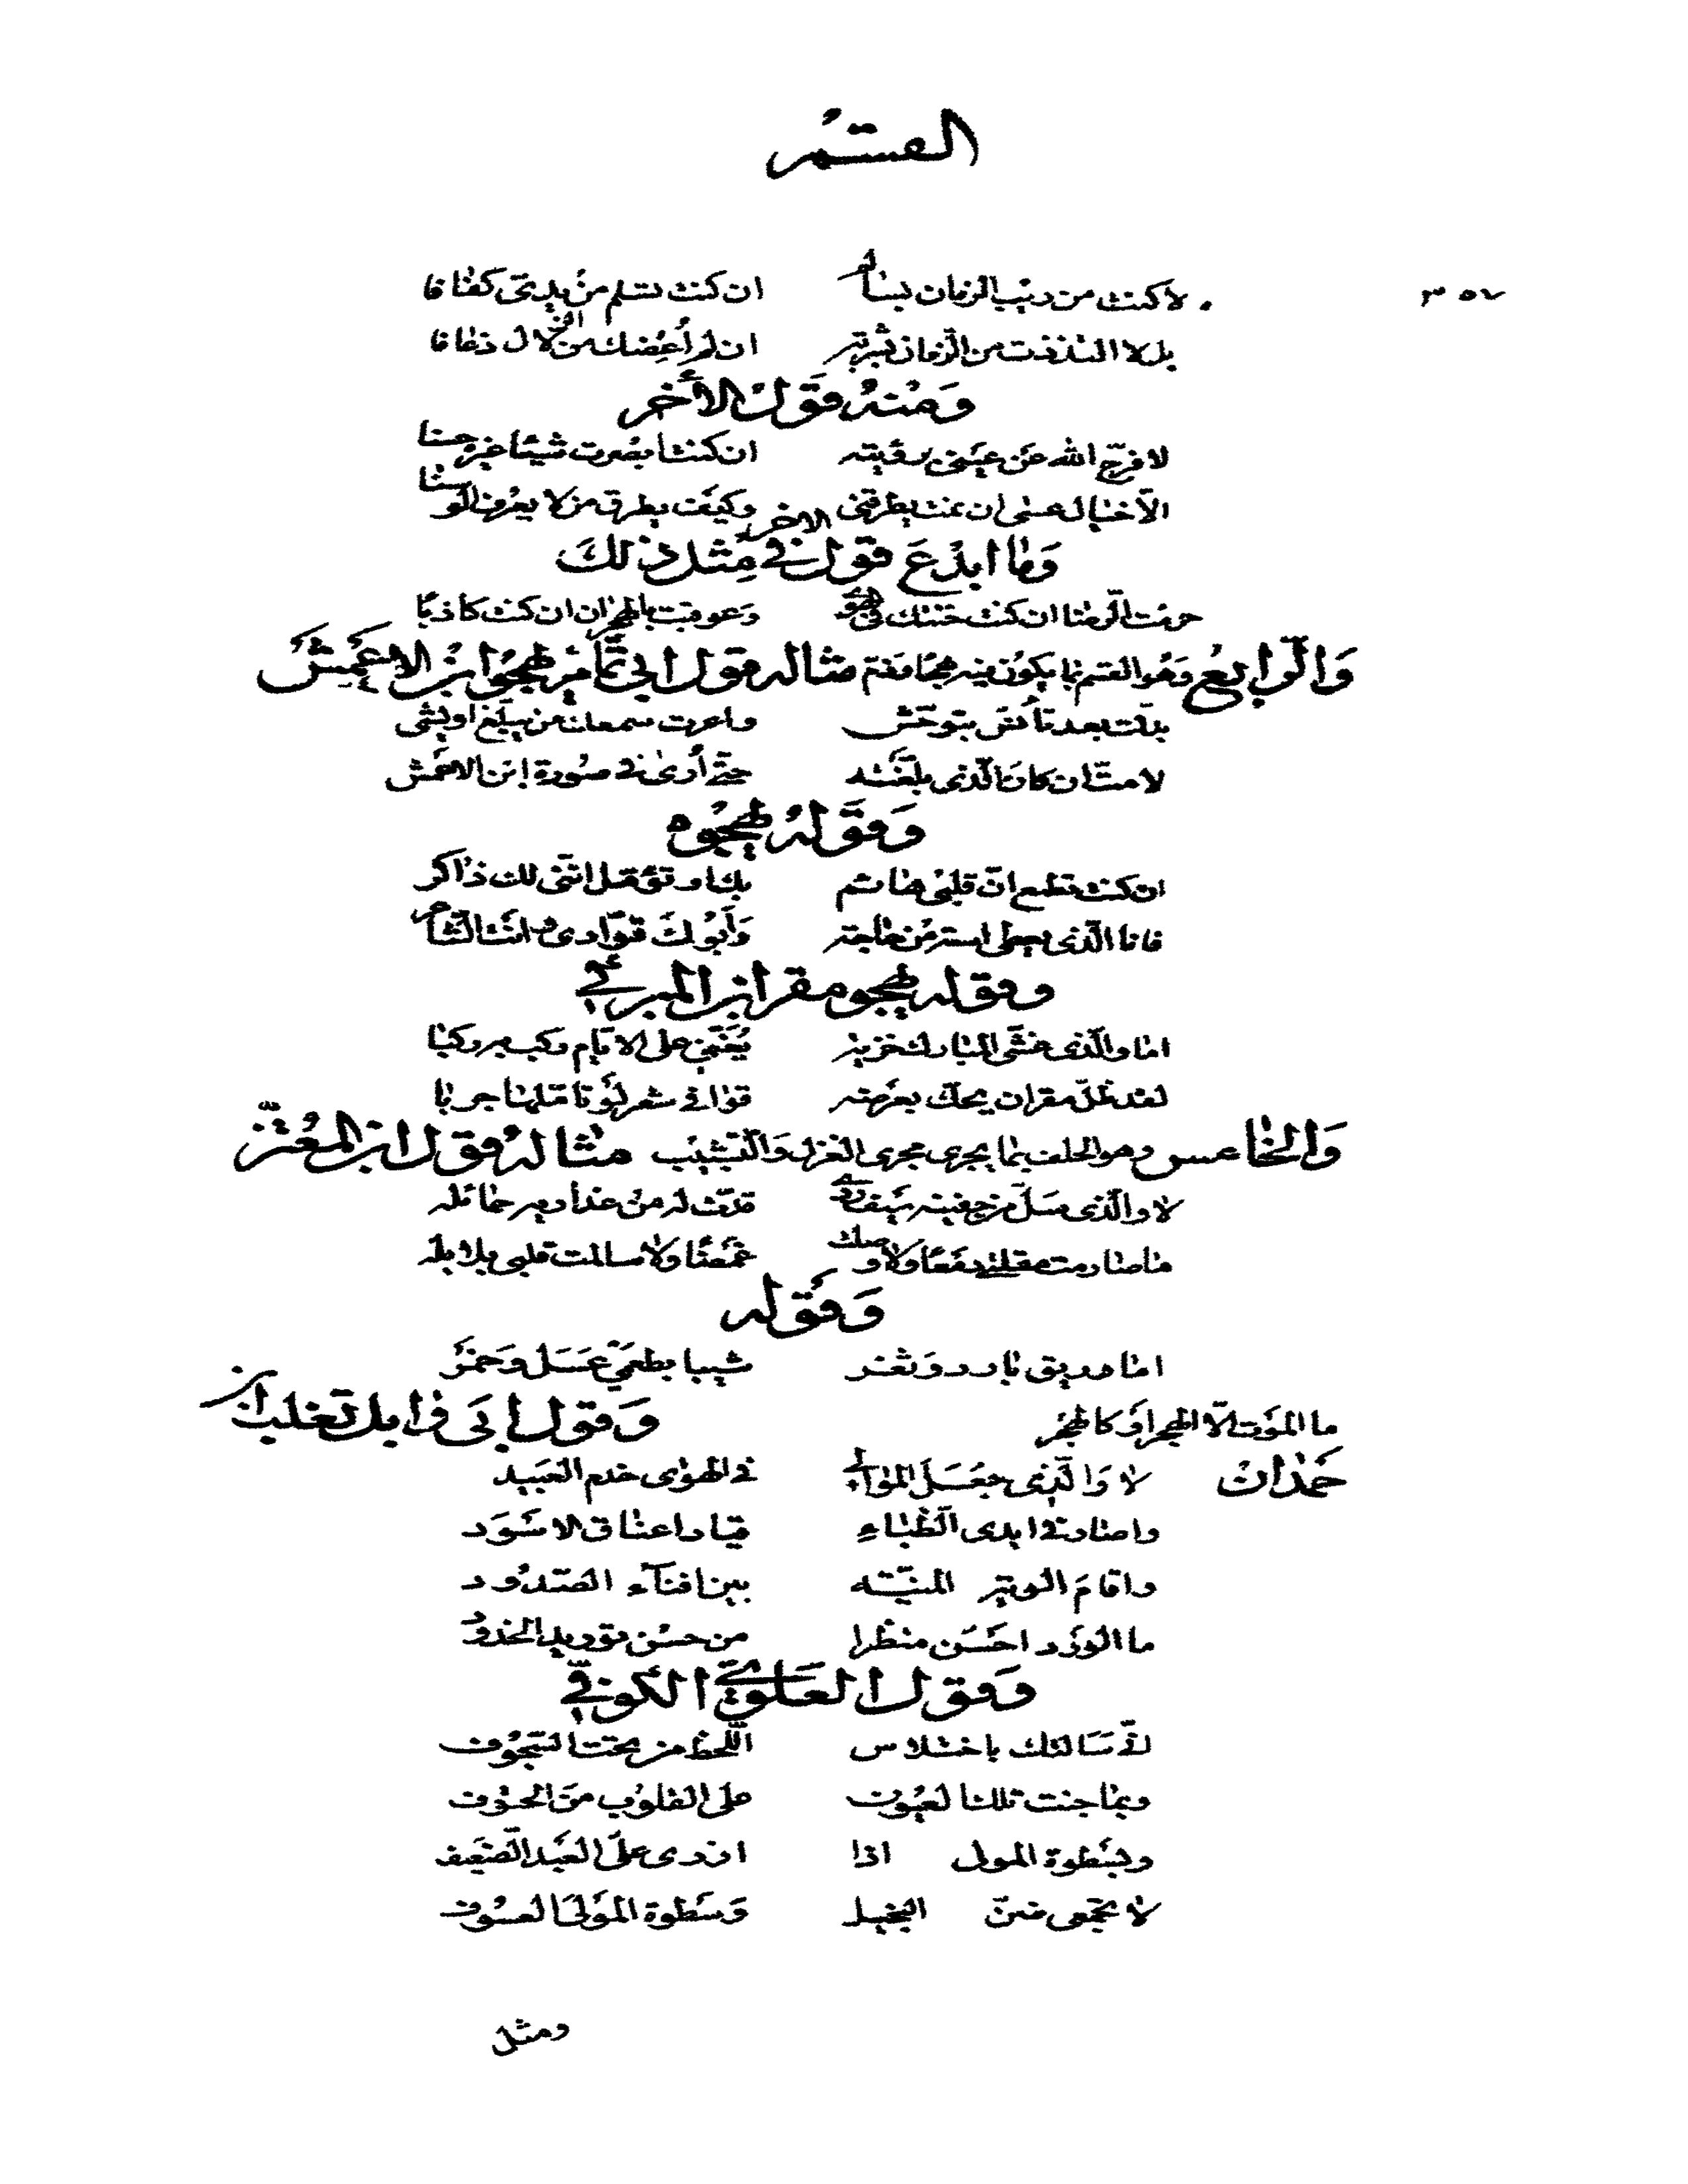 القسم
٣٥٧
لا كنت من ريب الزمان بسالم ان كنت تسلم من يدي كفافا
بل لا التذذت من الزمان بشربة ان لم أعضك من الزلال ذعافا
وَمنه قَول الأخر
لا فرج الله عن عيني برؤيته ان كنت ابصرت شيئا غيره حسنا
الا خيال عسى ان نمت يطرقني وكيف يطرق من لا يعرف الوسنا
وَما ابدع قول الاخر في مثل ذلك
حرمت الرضا ان كنت خنتك في الهوى وعوقبت بالهجران ان كنت كاذبا
وَالرابع وَهو القسم بما يكون فيه هجا وذم مثاله قول ابي تمام يهجو ابن الاعمش
بدلت بعد تأنس بتوحش واعرت سمعك من يبلغ او يشي
لا مت ان كان الذي بلغته حتى أرى في صورة ابن الاعمش
وَقوله يهجوه
ان كنت تطمع ان قلبي هائم بك او تؤمل انني لك ذاكر
فانا الذي يعطي استه من حاجة وَأبوك قوادي وانت الشاعر
وقوله يهجو مقران المبرقي
اما والذي غشى المبارك خزية يغني على الايام ركب بها ركبا
لقد ظل مقران يحك بعرضه قوافي شعر لو تأملها جربا
وَالخامس وهو الحلف بما يجري مجرى الغزل وَالتشبيب مثاله قول ابن المعتز
لا والذي سل من جفنيه سيف ردى قدت له من عذاريه حمائله
ما صارمت مقلتي دمعا ولا وصلت غمضا ولا سالمت قلبي بلابله
وَقوله
اما وريق بارد وَثغر شيبا بطعمي عسل وَخمر
ما الموت الا الهجر او كالهجر وَقول ابي وايل تغلب ابن
حمدان لا وَالذي جعل الموالي في الهوى خدم العبيد
واصار في ايدي الظباء قياد اعناق الاسود
واقام الوية المنية بين افناء الصدود
ما الورد احسن منظرا من حسن توريد الخدود
وَقول العلوي الكوفي
اللحظ من تحت السجوف
وبما جنت تلك العيون على القلوب من الحتوف
وبسطوة المولى اذا ازرى على العبد الضعيف
لا تجمعي ضن البخيل وَسطوة المولى العسوف
ومثل